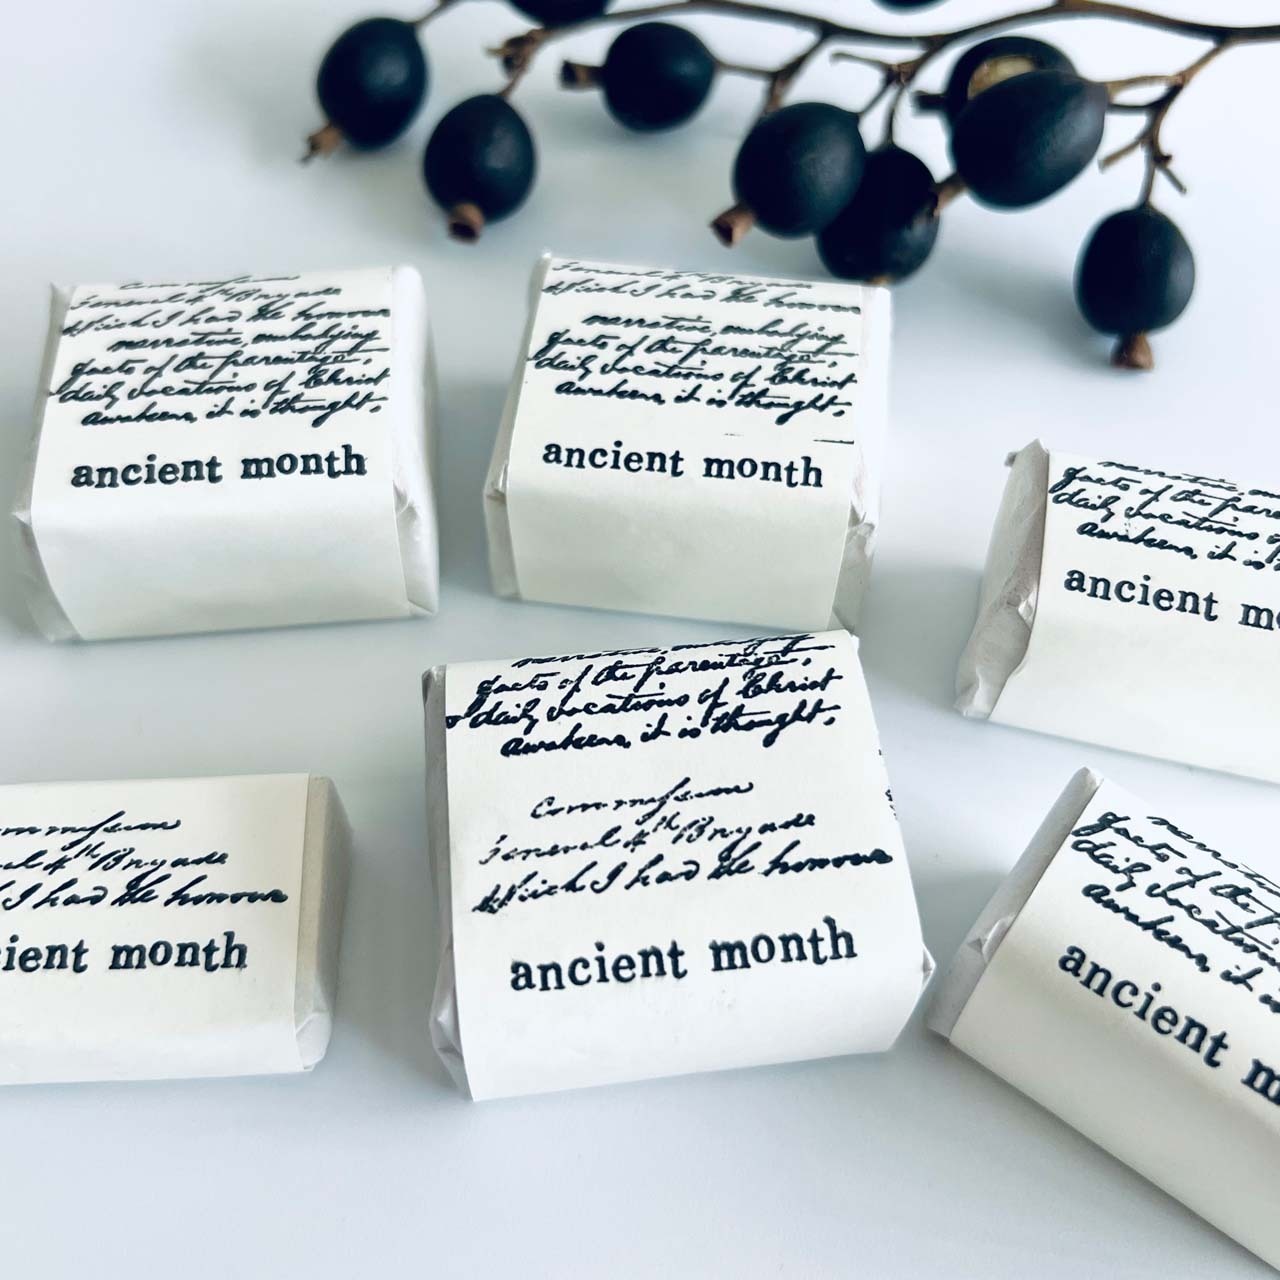 General 4th Brigade
Which I had the honour
narrative, embodying
facts of the parentage,
daily vocations of Christ
awakens, it is thought,
ancient month
General 4th Brigade
Which I had the honour
narrative, embodying
facts of the parentage,
daily vocations of Christ
awakens, it is thought,
ancient month
facts of the
daily vocations
awakens, it is
ancient
4th Brigade
I had the honour
month
narrative, embodying
facts of the parentage,
daily vocations of Christ
awakens, it is thought,
General 4th Brigade
Which I had the honour
ancient month
facts of the
daily vocations
awakens, it is
ancient